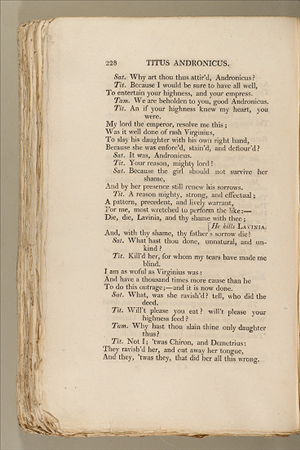 228 TITUS ANDRONICUS.
Sat. Why art thou thus attir'd, Andronicus?
Tit. Because I would be sure to have all well,
To entertain your highness, and your empress.
Tam. We are beholden to you, good Andronicus.
Tit. An if your highness knew my heart, you
were.
My lord the emperor, resolve me this;
Was it well done of rash Virginius,
To slay his daughter with his own right hand,
Because she was enforc'd, stain'd, and deflour'd?
Sat. It was, Andronicus.
Tit. Your reason, mighty lord!
Sat. Because the girl should not survive her
shame,
And by her presence still renew his sorrows.
Tit. A reason mighty, strong, and effectual;
A pattern, precedent, and lively warrant,
For me, most wretched to perform the like:—
Die, die, Lavinia, and thy shame with thee;
[He kills LAVINIA.
And, with thy shame, thy father's sorrow die!
Sat. What hast thou done, unnatural, and un-
kind?
Tit. Kill'd her, for whom my tears have made me
blind.
I am as woful as Virginius was:
And have a thousand times more cause than he
To do this outrage;—and it is now done.
Sat. What, was she ravish'd? tell, who did the
deed.
Tit. Will't please you eat? will't please your
highness feed?
Tam. Why hast thou slain thine only daughter
thus?
Tit. Not I; 'twas Chiron, and Demetrius:
They ravish'd her, and cut away her tongue,
And they, 'twas they, that did her all this wrong.